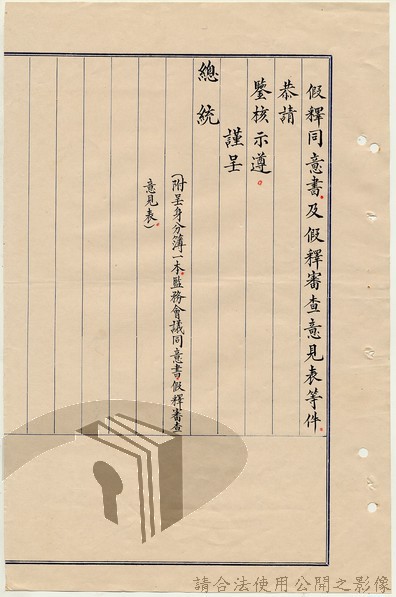 假釋同意書及假釋審查意見表等件。
恭請
鑒核示遵。
謹呈
總統
(附呈身分簿一本監務會議同意書假釋審查
意見表)。
請合法使用公開之影像